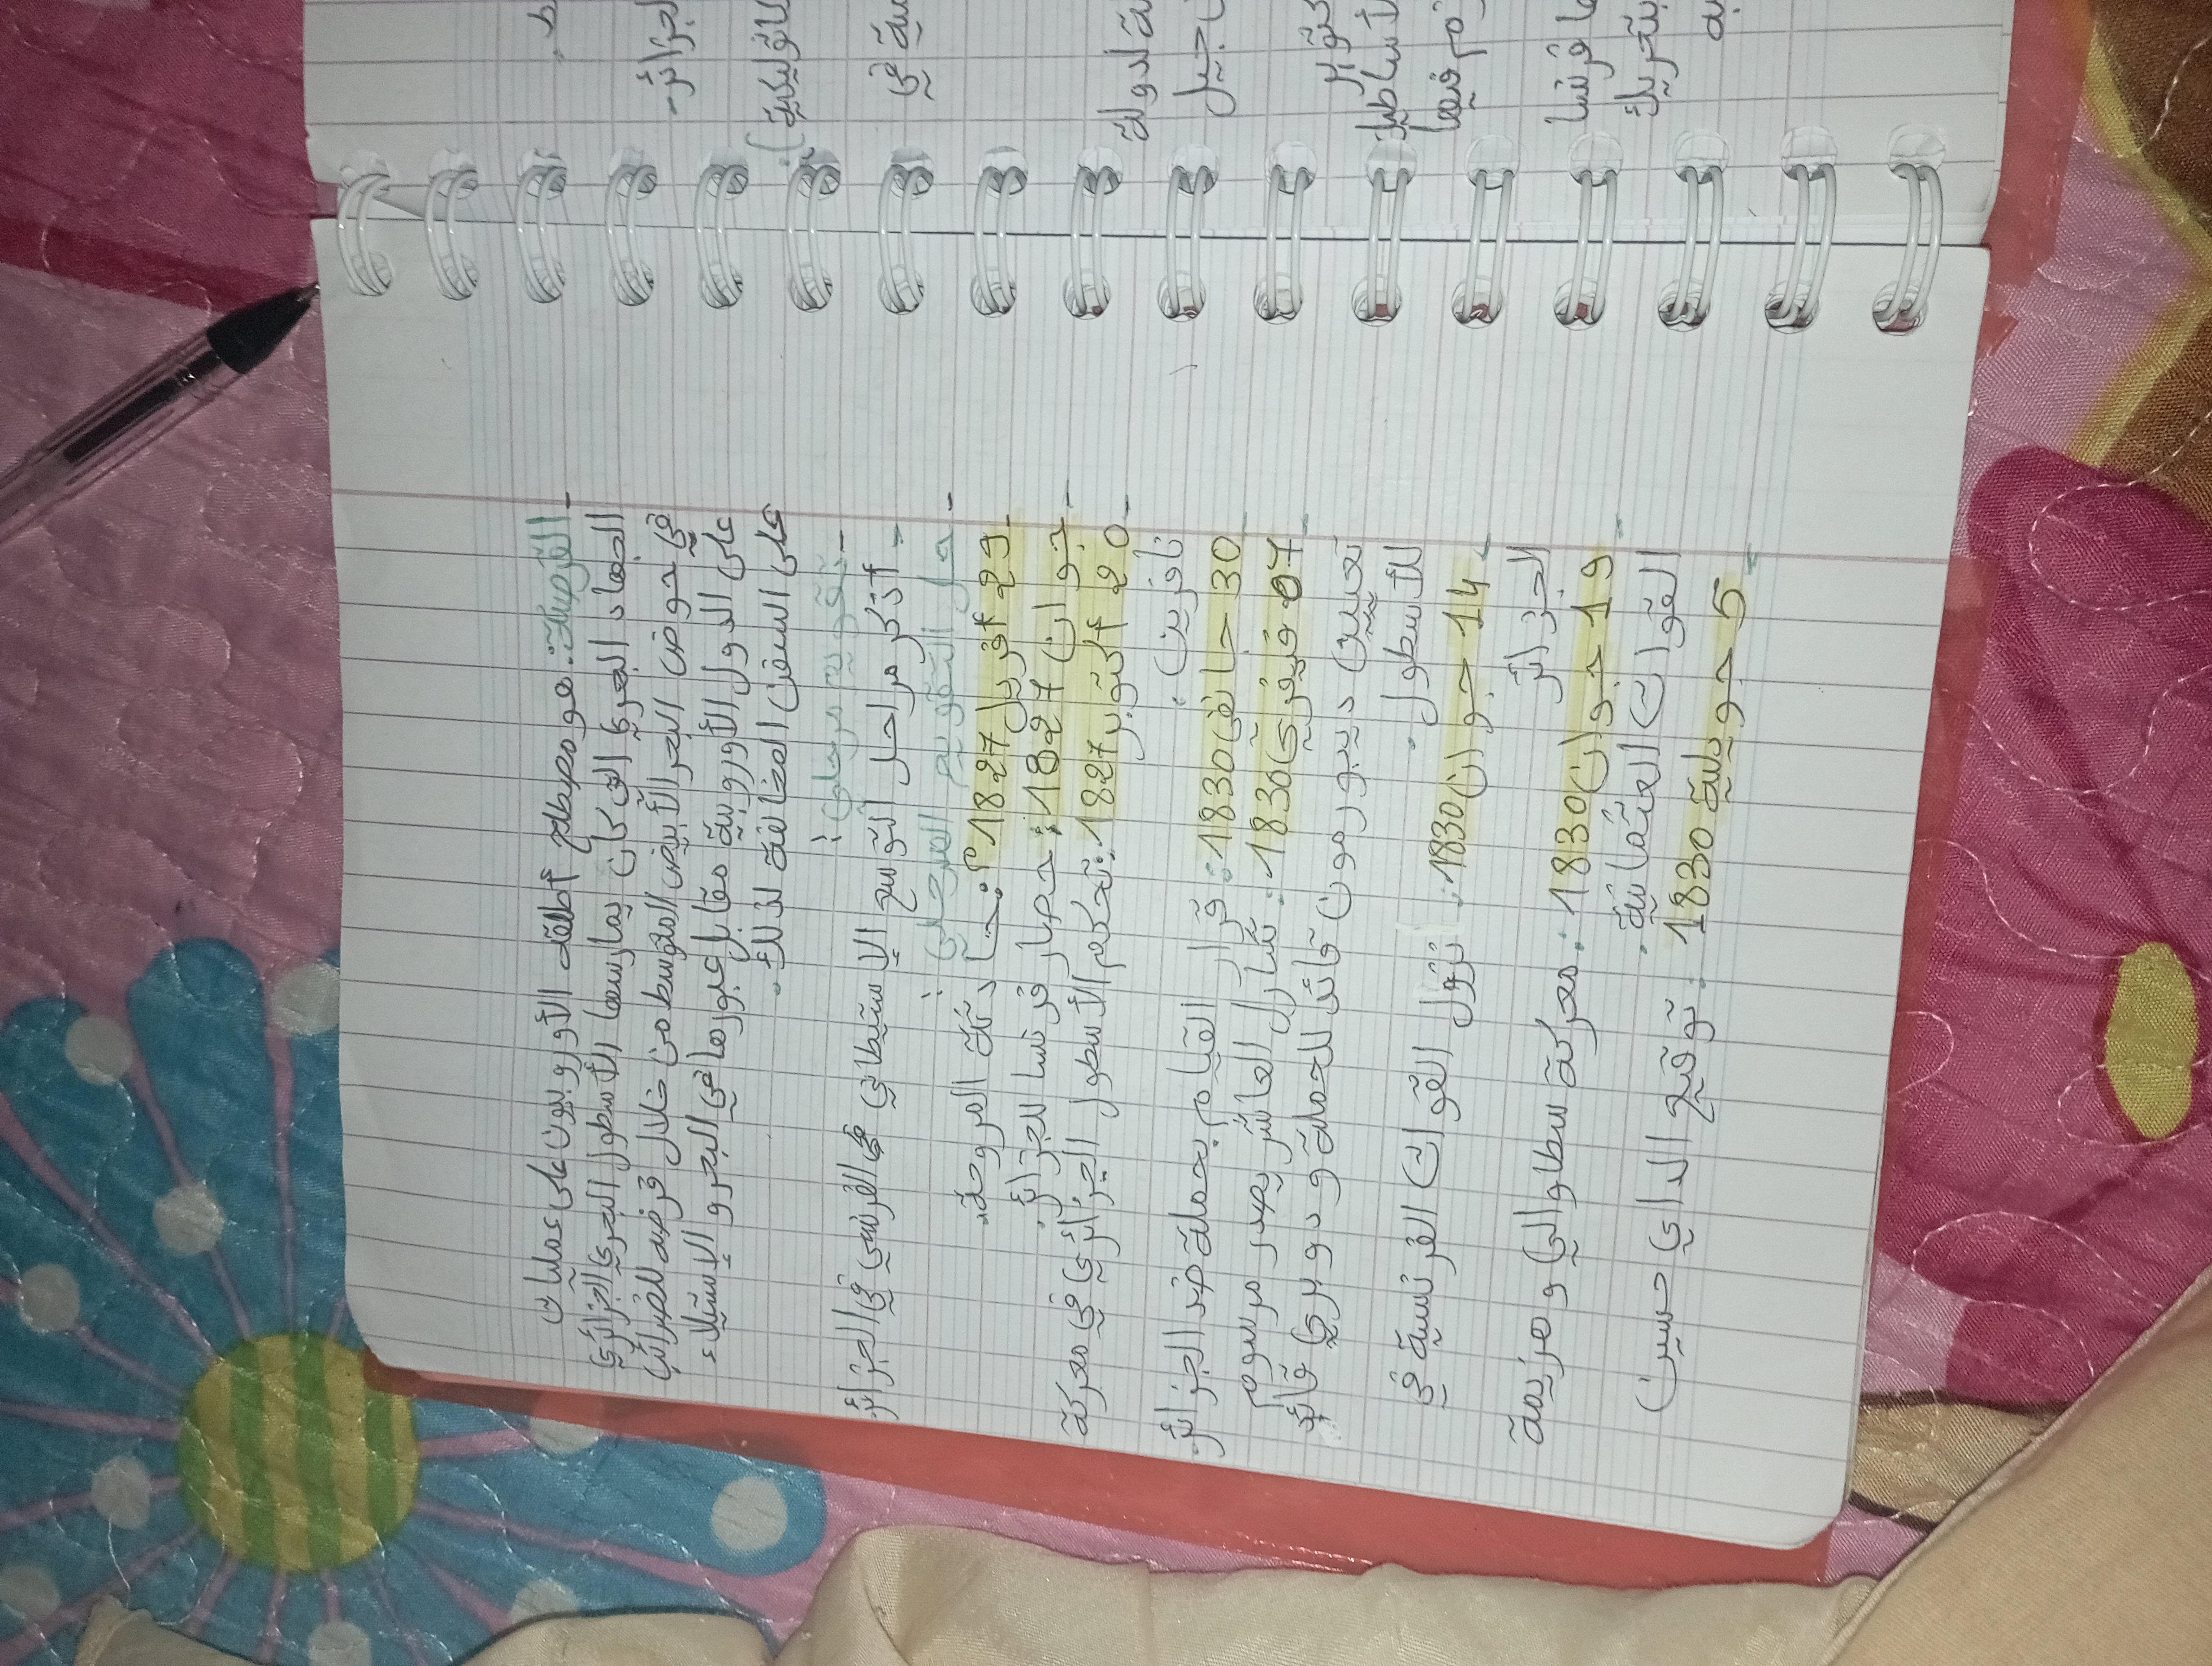 - القرصنة: هو مصطلح أطلقه الأوروبيون على عمليات
الجهاد البحري التي كان يمارسها الأسطول البحري الجزائري
في حوض البحر الأبيض المتوسط من خلال فرضه للضرائب
على الدول الأوروبية مقابل عبورها في البحر و الإستيلاء
على السفن المخالفة لذلك.
- تقويم مرحلي:
- أذكر مراحل التوسع الإستيطاني الفرنسي في الجزائر
- حل التقويم المرحلي:
- 29 أفريل 1827م: حادثة المروحة.
- جوان 1827: حصار فرنسا للجزائر.
- 20 أكتوبر 1827: تحكم الأسطول الجزائري في معركة
نافرين.
- 30 جانفي 1830: قرار القيام بحملة ضد الجزائر.
- 07 فيفري 1830: شارل العاشر يصدر مرسوم
تعيين ديبورمون قائد للحملة و دوبري قائد
للأسطول.
- 14 جوان 1830: نزول القوات الفرنسية في
الجزائر
- 19 جوان 1830: معركة سطاوالي و هزيمة
القوات العثمانية.
- 5 جويلية 1830: توقيع الداي حسين
لجزائر-
كاثوليكية).
مية في
ة لدولة
ن جيل
كتوبر
لأساطيل
زم فيها
ا فرنسا
بتحريك
به